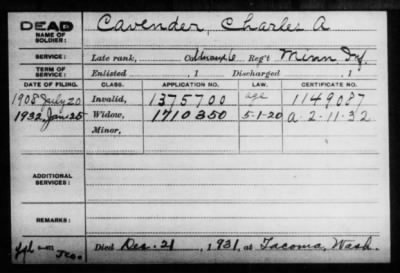 DEAD Cavender, Charles A
NAME OF SOLDIER:
SERVICE: Late rank, Reg't Minn Inf.
TERM OF SERVICE: Enlisted , 1 Discharged , 1
DATE OF FILING. CLASS. APPLICATION NO. LAW. CERTIFICATE NO.
1908 July 20 Invalid, 1375700 age 1149087
1932, Jan 25 Widow, 1710350 5-1-20 a-2-11-32
Minor,
ADDITIONAL SERVICES:
REMARKS:
Died Dec. 21, 1931, at Tacoma, Wash.